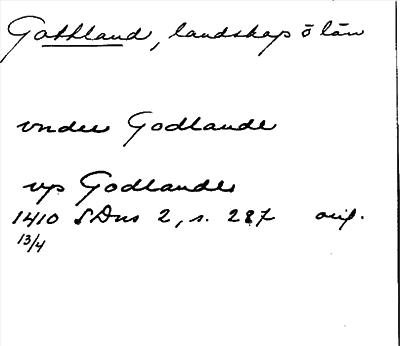 Gottland, landskap o län
vnder Godlande
vp Godlande
1410 SDns 2, s. 287 orig.
13/4